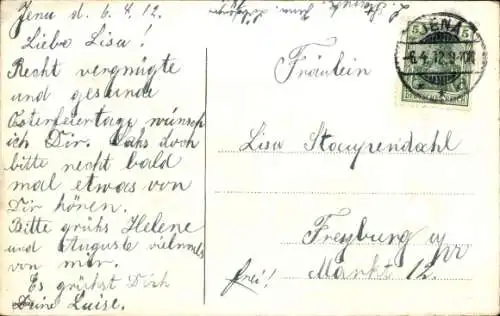 Jena d. 6.4.12.
Liebe Lisa!
Recht vergnügte
und gesunde
Osterfeiertage wünsch
ich Dir. Laß doch
bitte recht bald
mal etwas von
Dir hören.
Bitte grüße Helene
und Auguste vielmals
von mir.
Es grüßt Dich
Deine Luise.
JENA
-6.4.12.9-10V.
5 5
DEUTSCHES REICH
Fräulein
Lisa Staupendahl
Freyburg a/U
Markt 12.
frei!